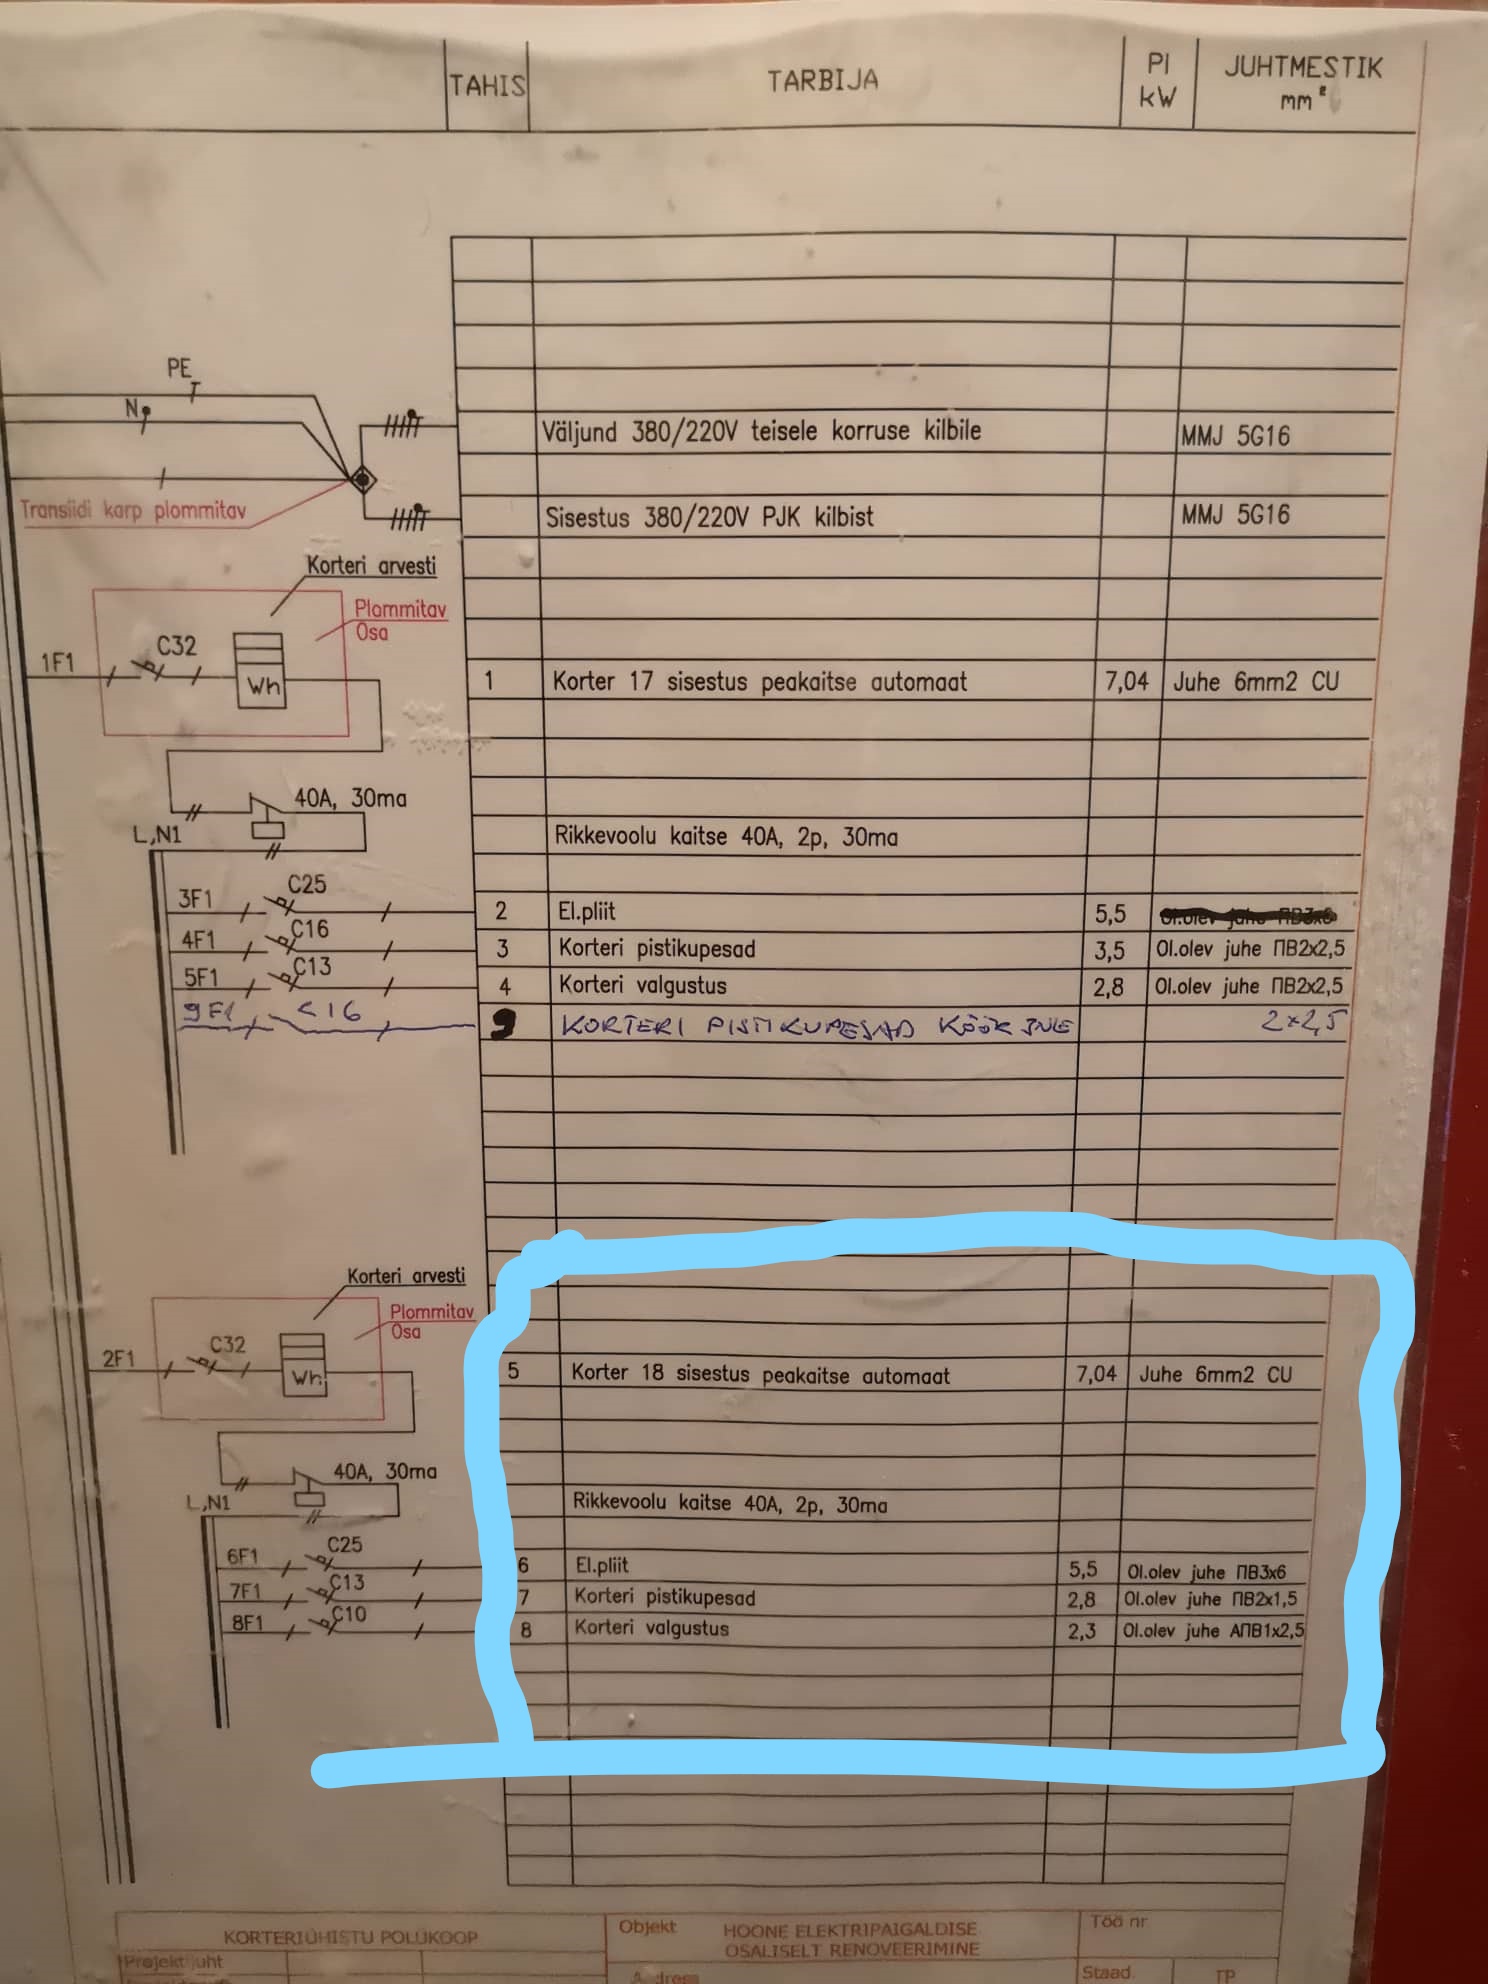 TAHIS TARBIJA PI kW JUHTMESTIK mm²
PE
N
Väljund 380/220V teisele korruse kilbile MMJ 5G16
Transiidi karp plommitav
Sisestus 380/220V PJK kilbist MMJ 5G16
Korteri arvesti
Plommitav
Osa
1F1 C32 Wh 1 Korter 17 sisestus peakaitse automaat 7,04 Juhe 6mm2 CU
40A, 30ma
L,N1 Rikkevoolu kaitse 40A, 2p, 30ma
3F1 C25 2 El.pliit 5,5
4F1 C16 3 Korteri pistikupesad 3,5 Ol.olev juhe ПВ2x2,5
5F1 C13 4 Korteri valgustus 2,8 Ol.olev juhe ПВ2x2,5
9F1 C16 9 KORTERI PISTIKUPESAD 2x2,5
Korteri arvesti
Plommitav
Osa
2F1 C32 Wh 5 Korter 18 sisestus peakaitse automaat 7,04 Juhe 6mm2 CU
40A, 30ma
L,N1 Rikkevoolu kaitse 40A, 2p, 30ma
6F1 C25 6 El.pliit 5,5 Ol.olev juhe ПВ3x6
7F1 C13 7 Korteri pistikupesad 2,8 Ol.olev juhe ПВ2x1,5
8F1 C10 8 Korteri valgustus 2,3 Ol.olev juhe АПВ1x2,5
KORTERIÜHISTU POLÜKOOP Objekt HOONE ELEKTRIPAIGALDISE Töö nr
OSALISELT RENOVEERIMINE
Projektijuht Staad TP